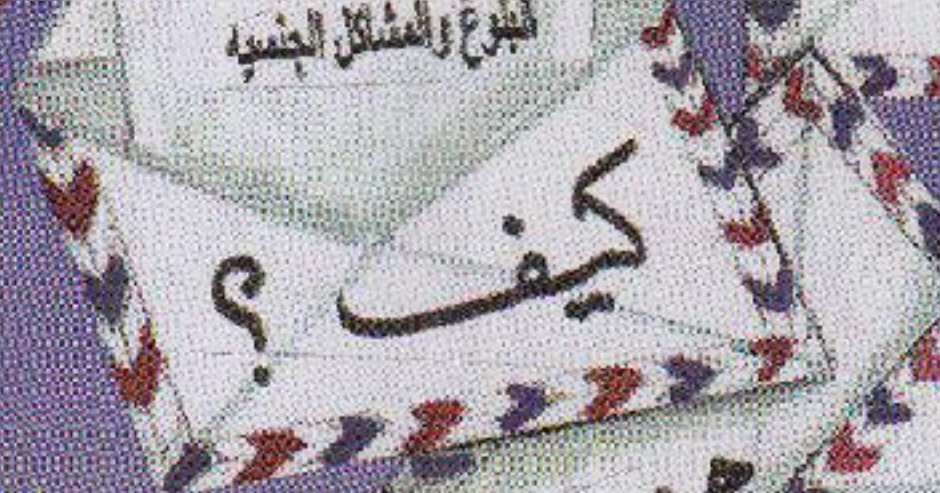 البلوغ والمشاكل الجنسية
كيف ؟